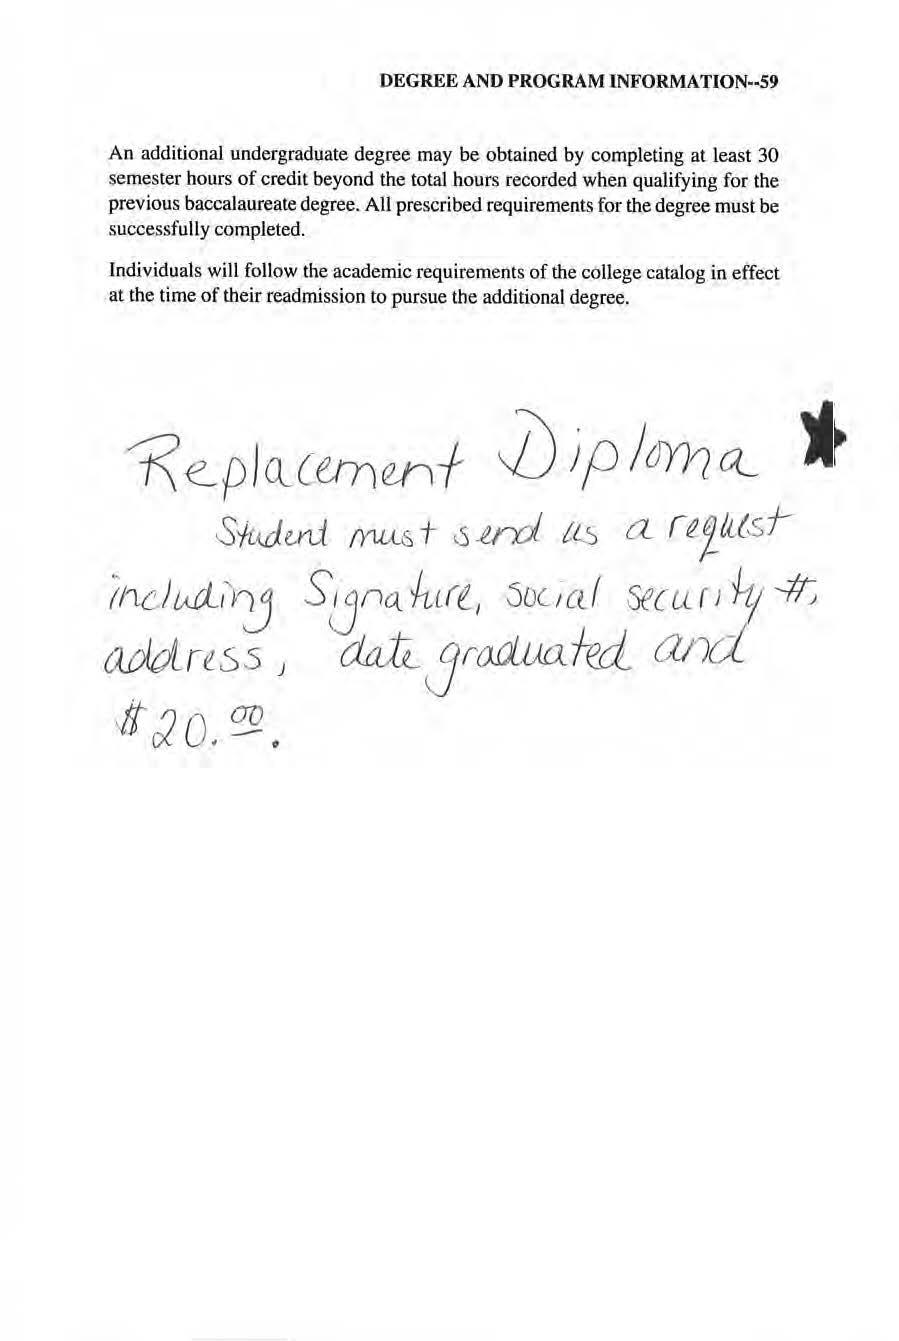 DEGREE AND PROGRAM INFORMATION--59
An additional undergraduate degree may be obtained by completing at least 30
semester hours of credit beyond the total hours recorded when qualifying for the
previous baccalaureate degree. All prescribed requirements for the degree must be
successfully completed.
Individuals will follow the academic requirements of the college catalog in effect
at the time of their readmission to pursue the additional degree.
Replacement Diploma ★
Student must send us a request
including Signature, social security #,
address, date graduated and
$20.00.